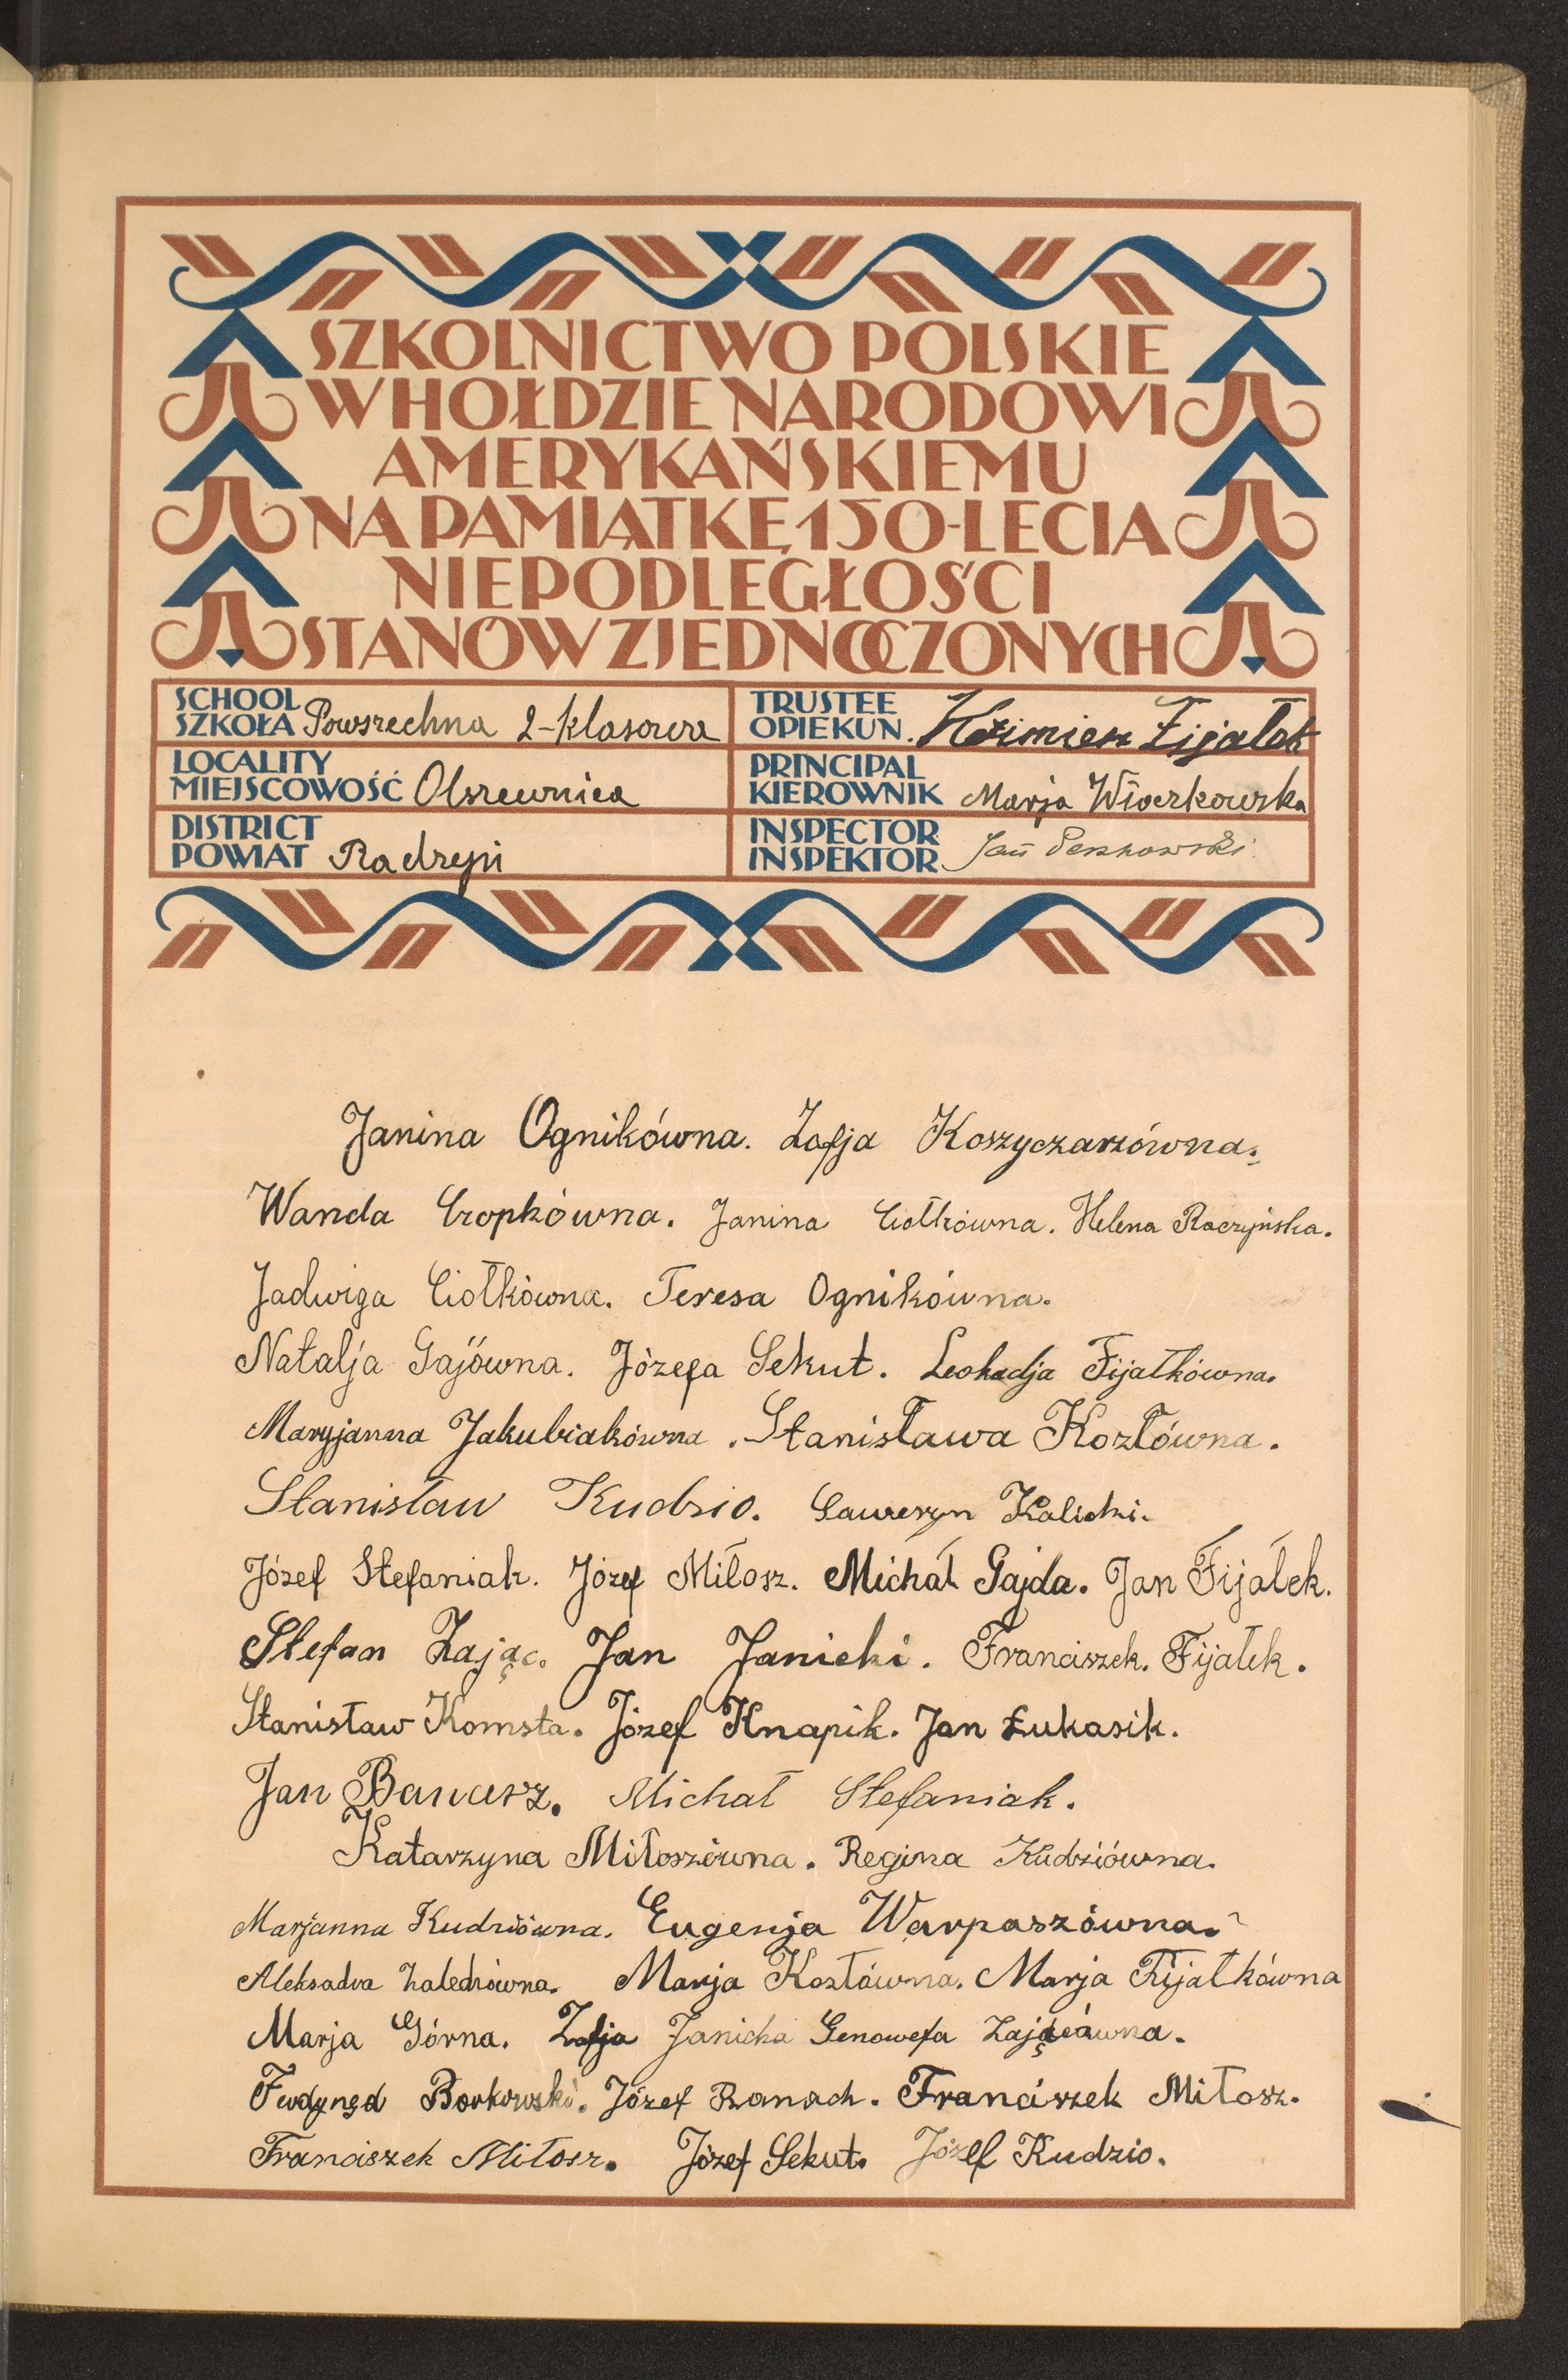 SZKOLNICTWO POLSKIE
W HOŁDZIE NARODOWI
AMERYKAŃSKIEMU
NA PAMIĄTKĘ 150-LECIA
NIEPODLEGŁOŚCI
STANÓW ZJEDNOCZONYCH
SCHOOL
SZKOŁA Powszechna 2-klasowa
LOCALITY
MIEJSCOWOŚĆ Olszewnica
DISTRICT
POWIAT Radzyń
TRUSTEE
OPIEKUN. Fijałek
PRINCIPAL
KIEROWNIK Marja
INSPECTOR
INSPEKTOR Jan
Janina Ognikówna. Zofja Koszyczarzówna.
Wanda Cropkówna. Janina Ciołkówna. Helena Raczyńska.
Jadwiga Ciołkówna. Teresa Ognikówna.
Natalja Gajówna. Józefa Sekut. Leokadja Fijałkówna.
Maryjanna Jakubiakówna. Stanisława Kozłówna.
Stanisław Kudzio. Kalicki.
Józef Stefaniak. Józef Miłosz. Michał Gajda. Jan Fijałek.
Stefan Zając. Jan Janicki. Franciszek. Fijałek.
Stanisław Komsta. Józef Knapik. Jan Łukasik.
Jan Michał Stefaniak.
Katarzyna Miłoszówna. Regina Kudziówna.
Marjanna Kudziówna. Eugenja Warpaszówna.
Aleksadra Marja Kozłówna. Marja Fijałkówna
Marja Górna. Zofja Janicka Genowefa Zającówna.
Borkowski. Józef Banach. Franciszek Miłosz.
Franciszek Miłosz. Józef Sekut. Józef Kudzio.